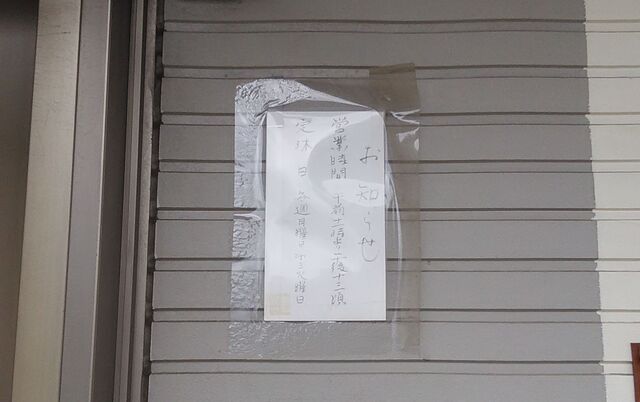 お知らせ
営業時間 午前十一時半 午後十三頃
定休日 毎週月曜日 第三火曜日